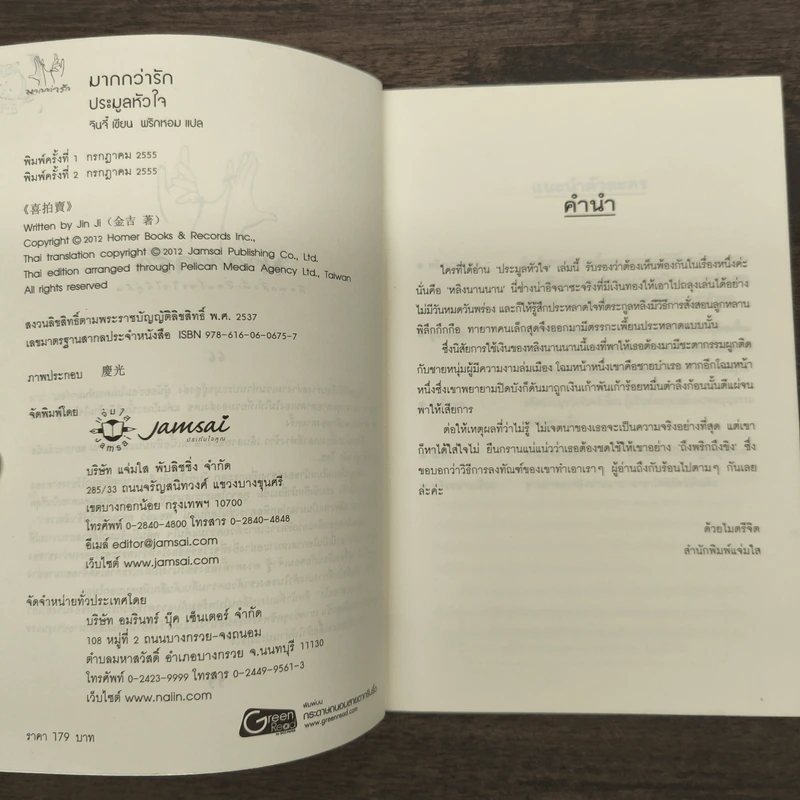 มากกว่ารัก
มากกว่ารัก
ประมูลหัวใจ
จินจี้ เขียน พริกหอม แปล
พิมพ์ครั้งที่ 1 กรกฎาคม 2555
พิมพ์ครั้งที่ 2 กรกฎาคม 2555
《喜拍賣》
Written by Jin Ji (金吉 著)
Copyright © 2012 Homer Books & Records Inc.,
Thai translation copyright © 2012 Jamsai Publishing Co., Ltd.
Thai edition arranged through Pelican Media Agency Ltd., Taiwan
All rights reserved
สงวนลิขสิทธิ์ตามพระราชบัญญัติลิขสิทธิ์ พ.ศ. 2537
เลขมาตรฐานสากลประจำหนังสือ ISBN 978-616-06-0675-7
ภาพประกอบ 慶光
จัดพิมพ์โดย
แจ่มใส
jamsai
Jamsai
ประทับใจคุณ
บริษัท แจ่มใส พับลิชชิ่ง จำกัด
285/33 ถนนจรัญสนิทวงศ์ แขวงบางขุนศรี
เขตบางกอกน้อย กรุงเทพฯ 10700
โทรศัพท์ 0-2840-4800 โทรสาร 0-2840-4848
อีเมล์ editor@jamsai.com
เว็บไซต์ www.jamsai.com
จัดจำหน่ายทั่วประเทศโดย
บริษัท อมรินทร์ บุ๊ค เซ็นเตอร์ จำกัด
108 หมู่ที่ 2 ถนนบางกรวย-จงถนอม
ตำบลมหาสวัสดิ์ อำเภอบางกรวย จ.นนทบุรี 11130
โทรศัพท์ 0-2423-9999 โทรสาร 0-2449-9561-3
เว็บไซต์ www.naiin.com
Green
Read
พิมพ์บน
กระดาษถนอมสายตากรีนรี้ด
www.greenread.com
ราคา 179 บาท
คำนำ
ใครที่ได้อ่าน 'ประมูลหัวใจ' เล่มนี้ รับรองว่าต้องเห็นพ้องกันในเรื่องหนึ่งค่ะ
นั่นคือ 'หลิงนานนาน' นี่ช่างน่าอิจฉาซะจริงที่มีเงินทองให้เอาไปถลุงเล่นได้อย่าง
ไม่มีวันหมดวันพร่อง และก็ให้รู้สึกประหลาดใจที่ตระกูลหลิงมีวิธีการสั่งสอนลูกหลาน
พิลึกกึกกือ ทายาทคนเล็กสุดจึงออกมามีตรรกะเพี้ยนประหลาดแบบนั้น
ซึ่งนิสัยการใช้เงินของหลิงนานนานนี้เองที่พาให้เธอต้องมามีชะตากรรมผูกติด
กับชายหนุ่มผู้มีความงามล่มเมือง โฉมหน้าหนึ่งเขาคือชายบำเรอ หากอีกโฉมหน้า
หนึ่งซึ่งเขาพยายามปิดบังก็ดันมาถูกเงินเก้าพันเก้าร้อยหมื่นตำลึงก้อนนั้นดีแผ่จน
พาให้เสียการ
ต่อให้เหตุผลที่ว่าไม่รู้ ไม่เจตนาของเธอจะเป็นความจริงอย่างที่สุด แต่เขา
ก็หาได้ใส่ใจไม่ ยืนกรานแน่แน่วว่าเธอต้องชดใช้ให้เขาอย่าง 'ถึงพริกถึงขิง' ซึ่ง
ขอบอกว่าวิธีการลงทัณฑ์ของเขาทำเอาเราๆ ผู้อ่านถึงกับร้อนไปตามๆ กันเลย
ล่ะค่ะ
ด้วยไมตรีจิต
สำนักพิมพ์แจ่มใส